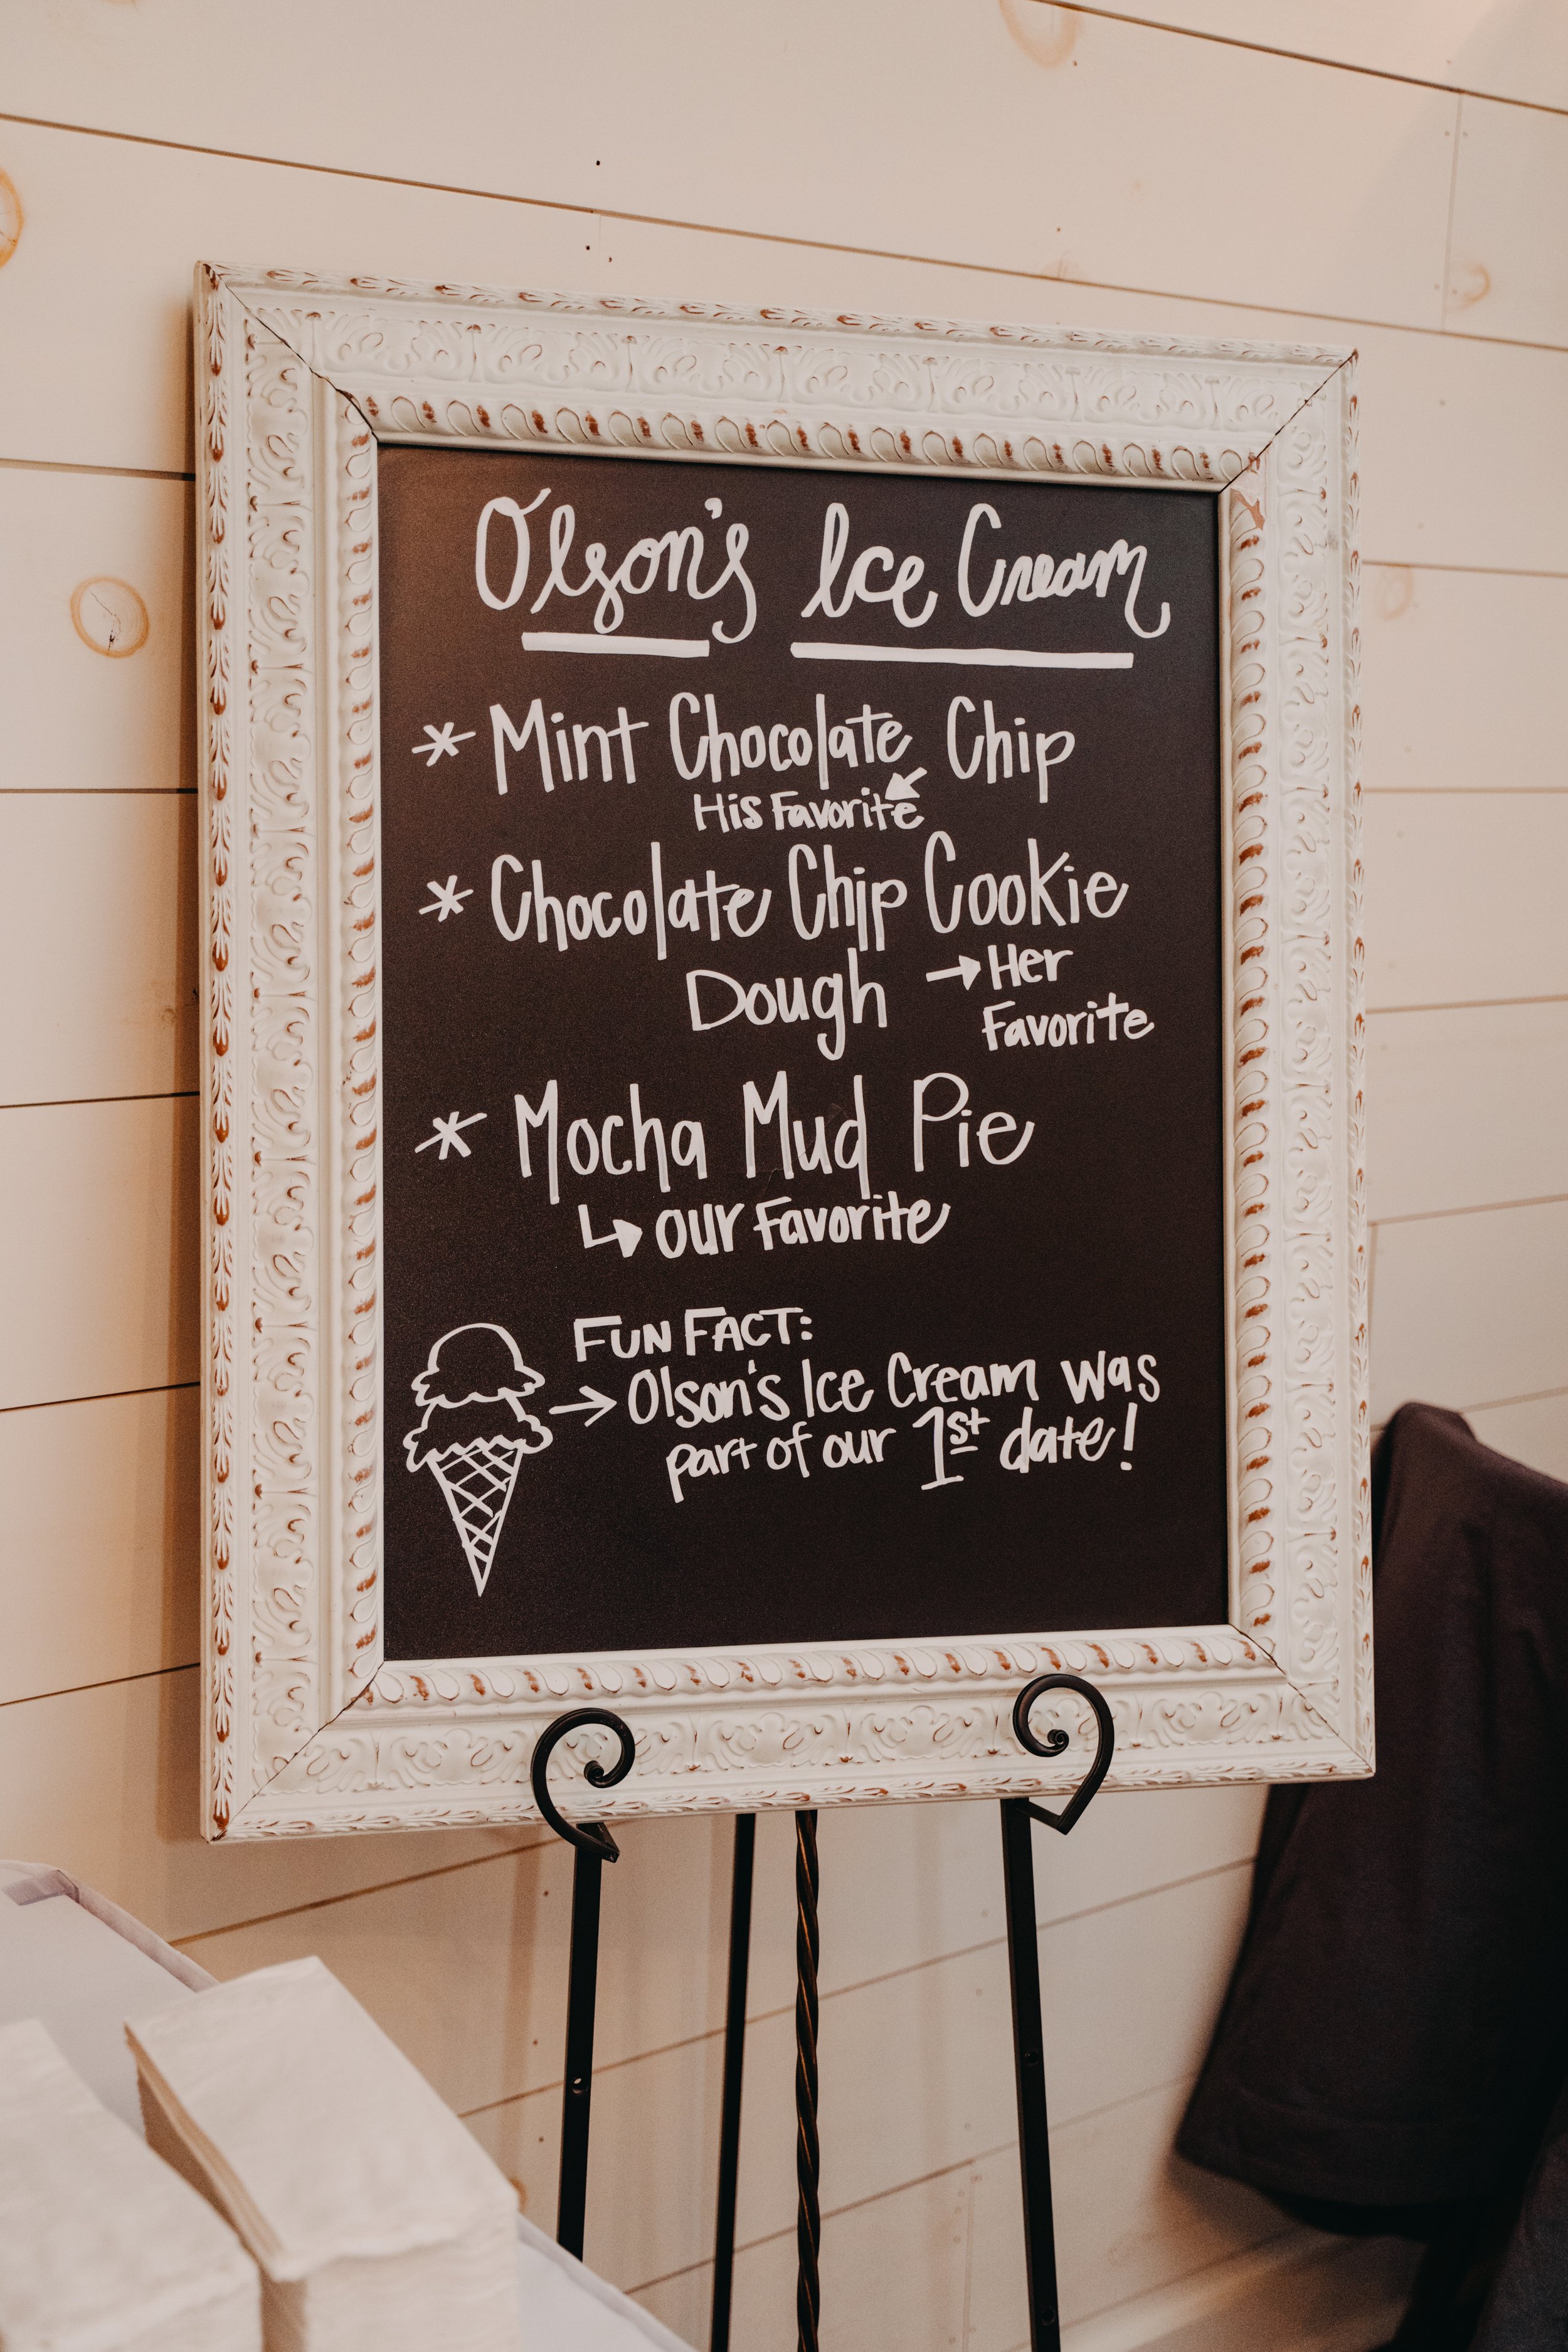 Olson's Ice Cream
* Mint Chocolate Chip
His Favorite
* Chocolate Chip Cookie
Dough → Her
Favorite
* Mocha Mud Pie
↳ our Favorite
FUN FACT:
→ Olson's Ice Cream was
part of our 1st date!